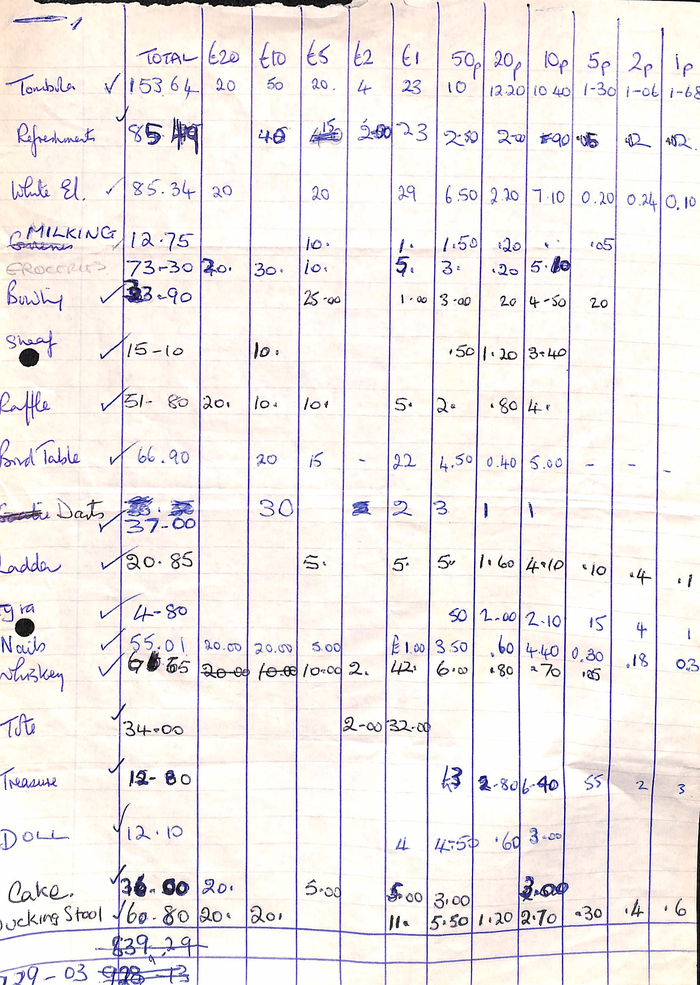 TOTAL £20 £10 £5 £2 £1 50p 20p 10p 5p 2p 1p
Tombola ✓ 153.64 20 50 20. 4 23 10 12.20 10 40 1-30 1-06 1-68
Refreshments ✓ 85 49 23 2.50
White El. ✓ 85.34 20 20 29 6.50 2.20 7.10 0.20 0.24 0.10
MILKING 12.75 10. 1. 1.50 .20 .05
GROCERIES 73-30 20. 30. 10. 5. 3. .20 5.10
Bowling ✓ 33-90 25-00 1-00 3-00 20 4-50 20
Sheaf ✓ 15-10 10. .50 1.20 3.40
Raffle ✓ 51-80 20. 10. 10. 5. 2. .80 4.
Table ✓ 66.90 20 15 - 22 4.50 0.40 5.00 - - -
Darts 30 2 3 1 1
✓ 37-00
Ladder ✓ 20.85 5. 5. 5. 1.60 4.10 .10 .4 .1
✓ 4-80 50 2.00 2.10 15 4 1
Nails ✓ 55.01 20.00 20.00 5.00 £1.00 3.50 .60 4.40 0.30 .18 0.3
Whiskey ✓ 20.00 10.00 10.00 2. 42. 6.00 .80 .70 .05
Tote ✓ 34.00 2-00 32-00
Treasure ✓ 12-80 13 2.80 6-40 55 2 3
DOLL ✓ 12.10 4 4-50 .60 3-00
Cake. ✓ 36.00 20. 5.00 5.00 3.00 3.00
ucking Stool ✓ 60.80 20. 20. 11. 5.50 1.20 2.70 .30 .4 .6
839.29
29-03 928-13